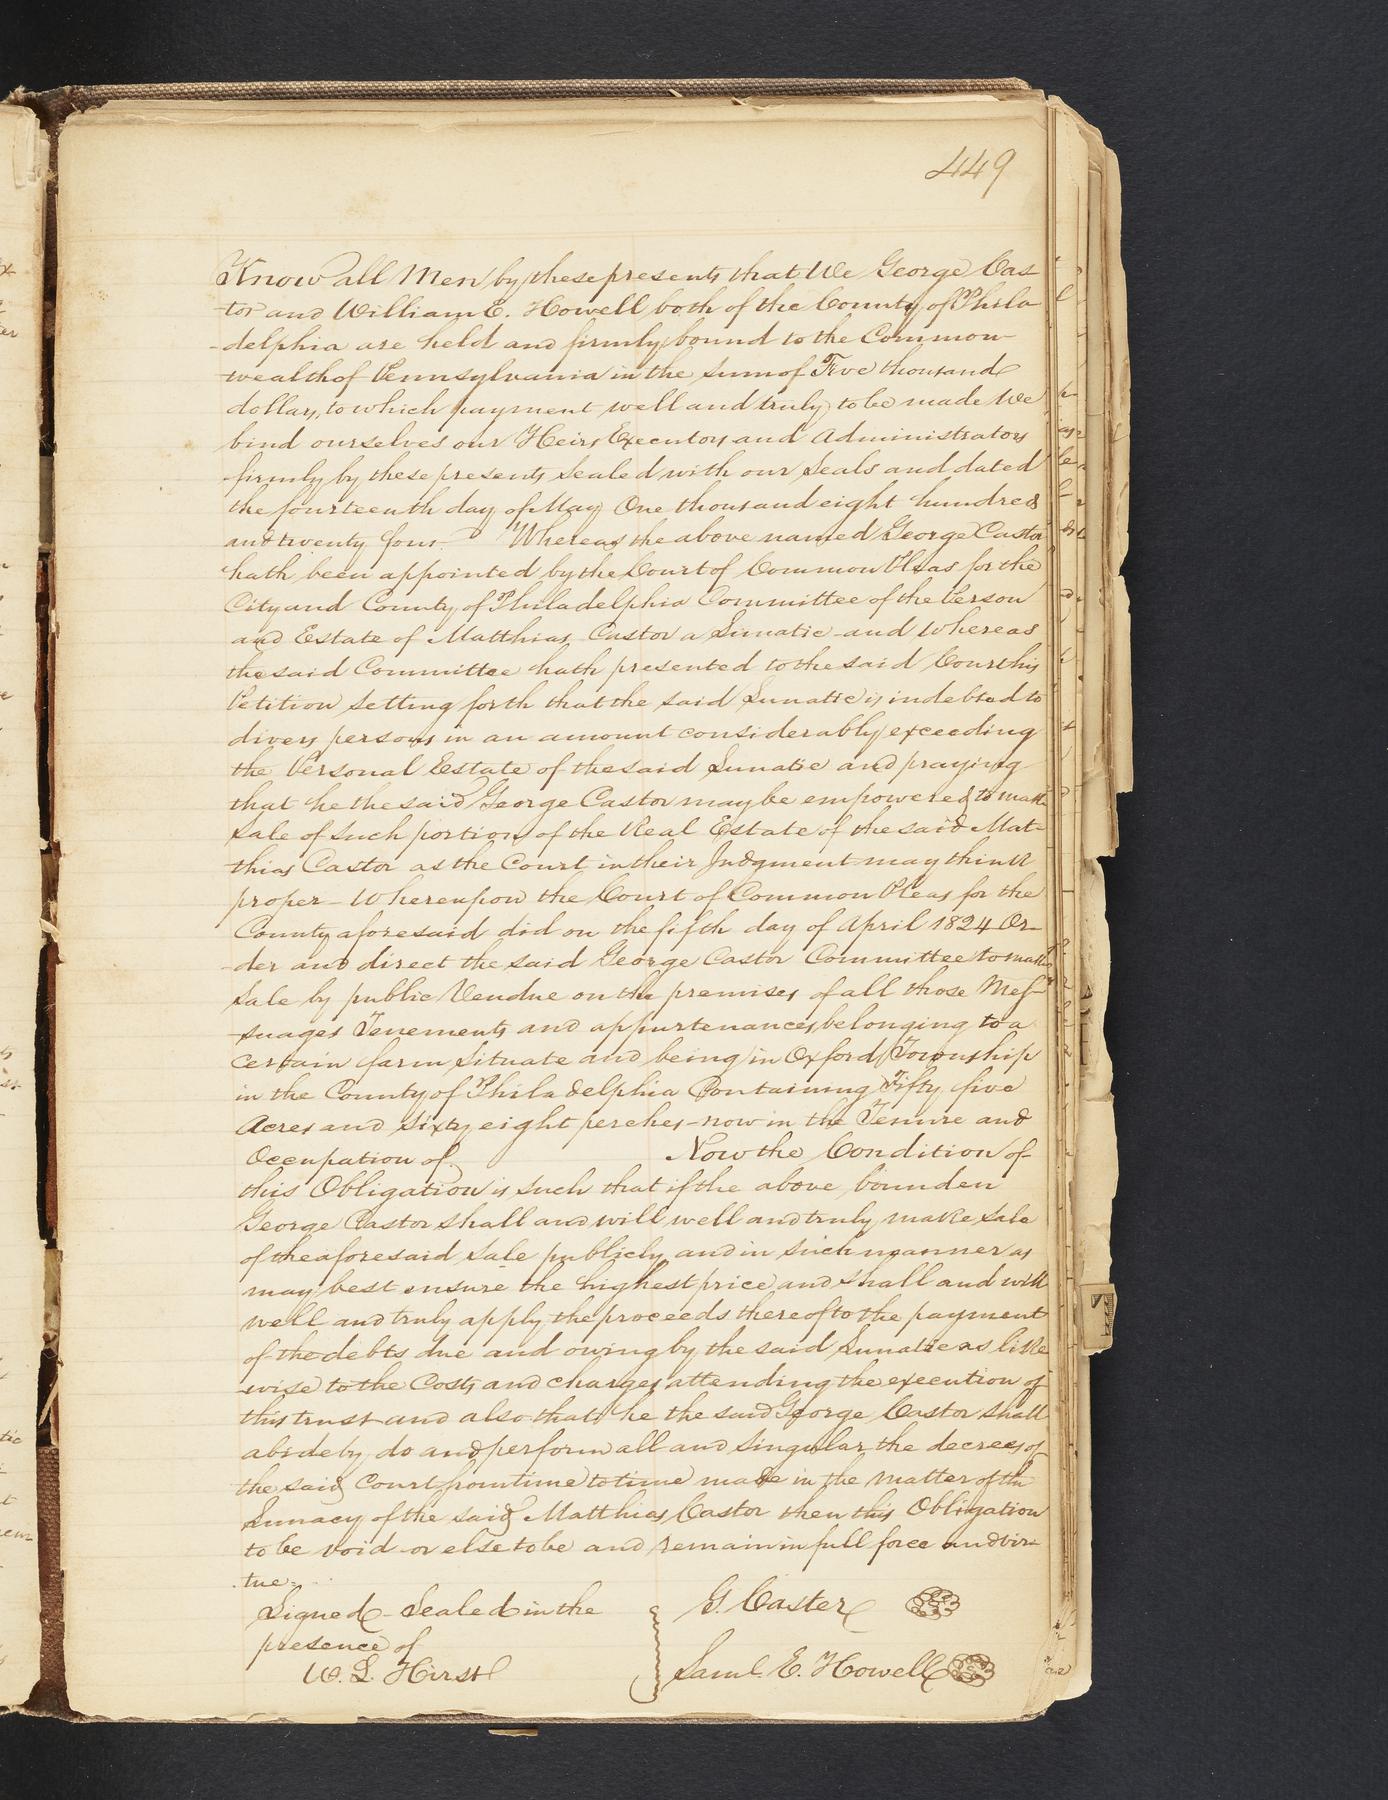 449
Know all Men by these presents that We George Cas
tor and William E. Howell both of the County of Phila
delphia are held and firmly bound to the Common
wealth of Pennsylvania in the Sum of Five thousand
dollars, to which payment well and truly to be made We
bind ourselves our Heirs Executors and Administrators
firmly by these presents Sealed with our Seals and dated
the fourteenth day of May One thousand eight hundred
and twenty four. Whereas the above named George Castor
hath been appointed by the Court of Common Pleas for the
City and County of Philadelphia Committee of the Person
and Estate of Matthias Castor a Lunatic and Whereas
the said Committee hath presented to the said Court his
Petition Setting forth that the said Lunatic is indebted to
divers persons in an amount considerably exceeding
the Personal Estate of the said Lunatic and praying
that he the said George Castor may be empowered to make
Sale of Such portion of the Real Estate of the said Mat-
thias Castor as the Court in their Judgment may think
proper - Whereupon the Court of Common Pleas for the
County aforesaid did on the fifth day of April 1824 Or-
der and direct the said George Castor Committee to make
Sale by public Vendue on the premises of all those Mes-
suages Tenements and appurtenances belonging to a
certain farm Situate and being in Oxford Township
in the County of Philadelphia Containing Fifty five
Acres and Sixty eight perches - now in the Tenure and
Occupation of Now the Condition of
this Obligation is Such that if the above bounden
George Castor Shall and will well and truly make Sale
of the aforesaid Sale publicly and in Such manner as
may best ensure the highest price and Shall and will
well and truly apply the proceeds thereof to the payment
of the debts due and owing by the said Lunatic as like
wise to the Costs and charges attending the execution of
this trust and also that he the said George Castor Shall
abide by do and perform all and Singular the decrees of
the said Court from time to time made in the Matter of the
Lunacy of the said Matthias Castor then this Obligation
to be void or else to be and remain in full force and vir-
tue.
Signed - Sealed in the G. Caster
presence of
W. L. Hirst Saml. E. Howell